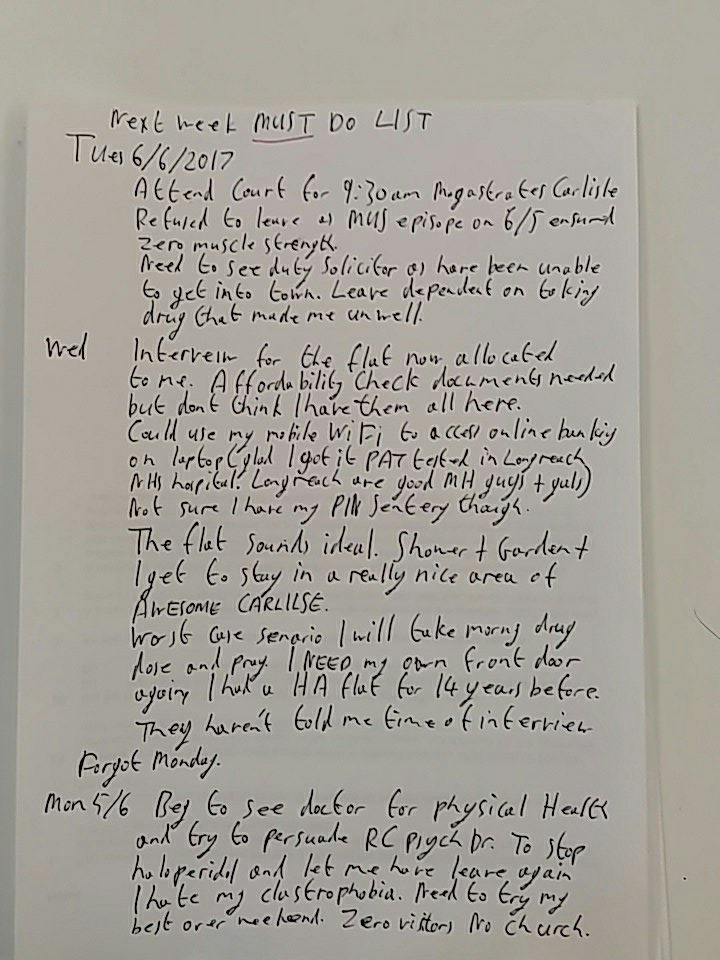 Next week MUST DO LIST
Tues 6/6/2017
Attend Court for 9:30am Magastrates Carlisle
Refused to leave as MUS episope on 6/5 ensured
Zero muscle strength.
Need to see duty Solicitor as have been unable
to get into town. Leave dependent on taking
drug that made me unwell.
Wed Interveiw for the flat now allocated
to me. Affordability Check documents needed
but dont think I have them all here.
Could use my mobile WiFi to access online banking
on laptop (glad I got it PAT tested in Longreach
NHS hospital. Longreach are good MH guys + gals)
Not sure I have my PIN Sentery though.
The flat sounds ideal. Shower + Garden +
I get to stay in a really nice area of
AWESOME CARLILSE.
Worst case senario I will take morng drug
dose and pray. I NEED my own front door
again I had a HA flat for 14 years before.
They haven't told me time of interview
Forgot Monday.
Mon 5/6 Beg to see doctor for physical Health
and try to persuade RC psych Dr. To stop
haloperidol and let me have leave again
I hate my clastrophobia. Need to try my
best over weekend. Zero visitors No church.